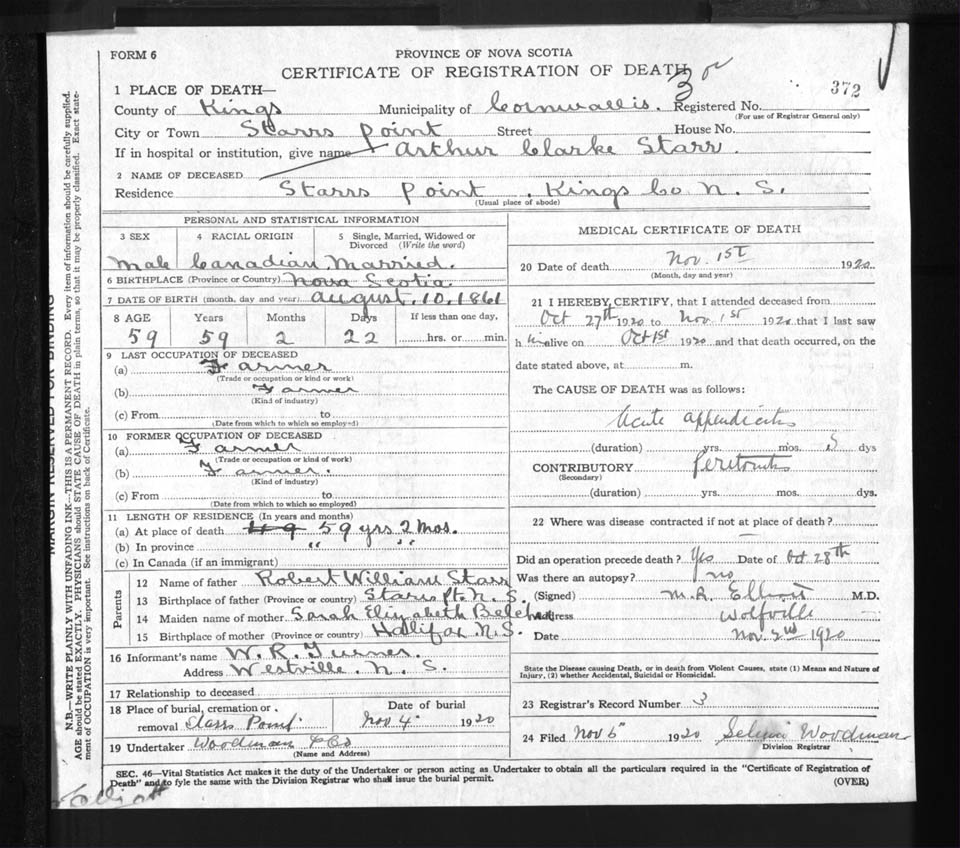 FORM 6
PROVINCE OF NOVA SCOTIA
CERTIFICATE OF REGISTRATION OF DEATH
3
372
1 PLACE OF DEATH—
County of Kings Municipality of Cornwallis. Registered No.
(For use of Registrar General only)
City or Town Starrs Point Street House No.
If in hospital or institution, give name Arthur Clarke Starr
2 NAME OF DECEASED
Residence Starrs Point, Kings Co N. S.
(Usual place of abode)
PERSONAL AND STATISTICAL INFORMATION
3 SEX 4 RACIAL ORIGIN 5 Single, Married, Widowed or Divorced (Write the word)
Male Canadian Married.
6 BIRTHPLACE (Province or Country) Nova Scotia
7 DATE OF BIRTH (month, day and year) August, 10, 1861
8 AGE Years Months Days If less than one day,
59 59 2 22 hrs. or min.
9 LAST OCCUPATION OF DECEASED
(a) Farmer
(Trade or occupation or kind or work)
(b) Farmer
(Kind of industry)
(c) From to
(Date from which to which so employed)
10 FORMER OCCUPATION OF DECEASED
(a) Farmer
(Trade or occupation or kind of work)
(b) Farmer.
(Kind of industry)
(c) From to
(Date from which to which so employed)
11 LENGTH OF RESIDENCE (In years and months)
(a) At place of death 49 59 yrs 2 Mos.
(b) In province " "
(c) In Canada (if an immigrant)
Parents
12 Name of father Robert William Starr
13 Birthplace of father (Province or country) Starrs Pt. N. S.
14 Maiden name of mother Sarah Elizabeth Belcher
15 Birthplace of mother (Province or country) Halifax N.S.
16 Informant's name W. R. Turner.
Address Westville. N. S.
17 Relationship to deceased
18 Place of burial, cremation or removal Point Date of burial Nov 4 1920
19 Undertaker Woodman & Co
(Name and Address)
MEDICAL CERTIFICATE OF DEATH
20 Date of death Nov. 1st 1920
(Month, day and year)
21 I HEREBY CERTIFY, that I attended deceased from
Oct 27th 1920 to Nov 1st 1920 that I last saw
h im alive on Oct 1st 1920 and that death occurred, on the
date stated above, at m.
The CAUSE OF DEATH was as follows:
Acute appendicitis
(duration) yrs. mos. 5 dys
CONTRIBUTORY Peretonitis
(Secondary)
(duration) yrs. mos. dys.
22 Where was disease contracted if not at place of death?
Did an operation precede death? Yes Date of Oct 28th
Was there an autopsy? no
(Signed) M. R. Elliott M.D.
Address Wolfville
Date Nov. 2nd 1920
State the Disease causing Death, or in death from Violent Causes, state (1) Means and Nature of
Injury, (2) whether Accidental, Suicidal or Homicidal.
23 Registrar's Record Number 3
24 Filed Nov 6" 1920 Woodman
Division Registrar
SEC. 46—Vital Statistics Act makes it the duty of the Undertaker or person acting as Undertaker to obtain all the particulars required in the "Certificate of Registration of
Death" and to fyle the same with the Division Registrar who shall issue the burial permit. (OVER)
Elliott
MARGIN RESERVED FOR BINDING
N.B.—WRITE PLAINLY WITH UNFADING INK—THIS IS A PERMANENT RECORD. Every item of information should be carefully supplied.
AGE should be stated EXACTLY. PHYSICIANS should STATE CAUSE OF DEATH in plain terms, so that it may be properly classified. Exact state-
ment of OCCUPATION is very important. See instructions on back of Certificate.